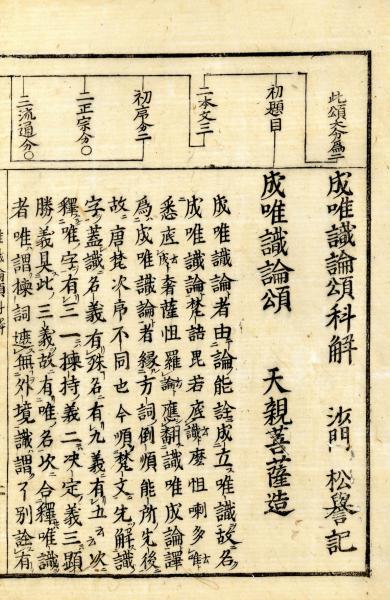 此頌大分為二
初題目
二本文三
初序分二
二正宗分〇
三流通分〇
成唯識論頌科解 沙門 松譽記
成唯識論頌 天親菩薩造
成唯識論者由論能詮成立唯識故名
成唯識論梵語毘若底識麼怛喇多唯
悉底成奢薩怛羅論應翻識唯成論譯
為成唯識論者緣方詞倒順能所先後
故唐梵次序不同也今順梵文先解識
字蓋識名義有殊名有九義有五云云次
釋唯字有三一揀持義二決定義三顯
勝義具此三義故有唯名次合釋唯識
者唯謂揀詞遮無外境識謂了別詮有